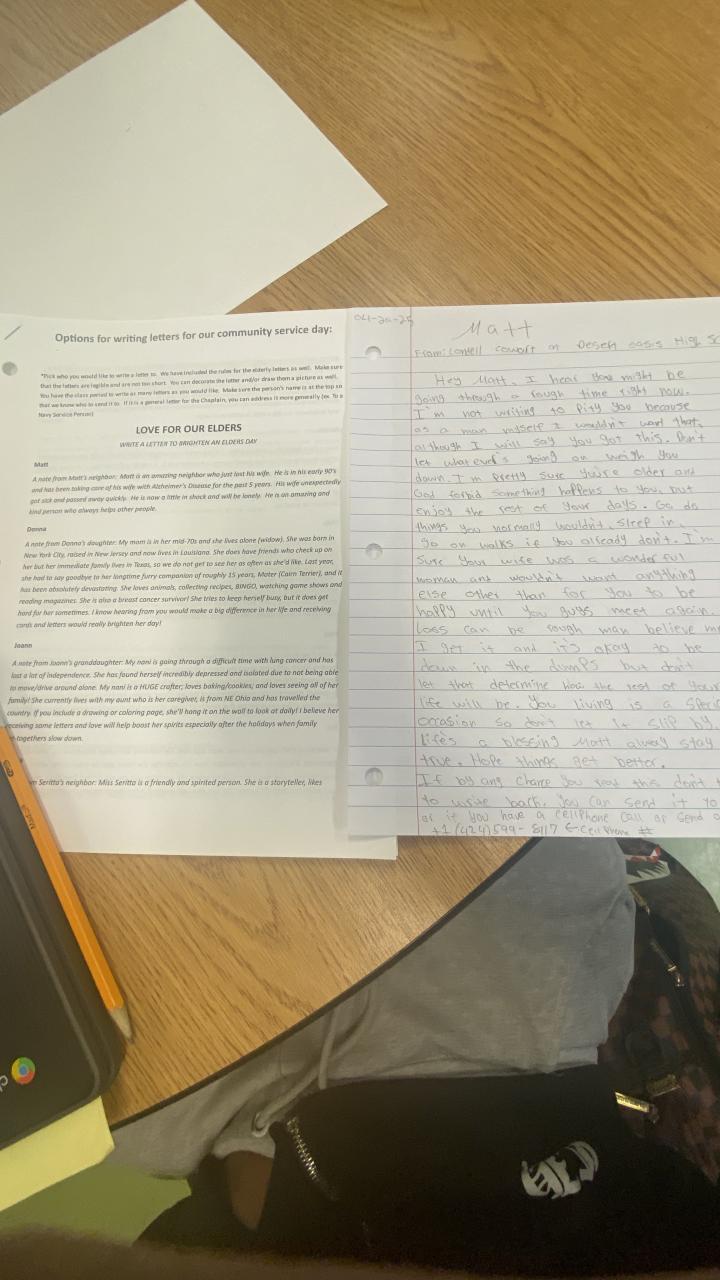 Options for writing letters for our community service day:
*Pick who you would like to write a letter to. We have included the rules for the elderly letters as well. Make sure
that the letters are legible and are not too short. You can decorate the letter and/or draw them a picture as well.
You have the class period to write as many letters as you would like. Make sure the person's name is at the top so
that we know who to send it to. If it is a general letter for the Chaplain, you can address it more generally (ex. To a
Navy Service Person)
LOVE FOR OUR ELDERS
WRITE A LETTER TO BRIGHTEN AN ELDERS DAY
Matt
A note from Matt's neighbor: Matt is an amazing neighbor who just lost his wife. He is in his early 90's
and has been taking care of his wife with Alzheimer's Disease for the past 5 years. His wife unexpectedly
got sick and passed away quickly. He is now a little in shock and will be lonely. He is an amazing and
kind person who always helps other people.
Donna
A note from Donna's daughter: My mom is in her mid-70s and she lives alone (widow). She was born in
New York City, raised in New Jersey and now lives in Louisiana. She does have friends who check up on
her but her immediate family lives in Texas, so we do not get to see her as often as she'd like. Last year,
she had to say goodbye to her longtime furry companion of roughly 15 years, Mater (Cairn Terrier), and it
has been absolutely devastating. She loves animals, collecting recipes, BINGO, watching game shows and
reading magazines. She is also a breast cancer survivor! She tries to keep herself busy, but it does get
hard for her sometimes. I know hearing from you would make a big difference in her life and receiving
cards and letters would really brighten her day!
Joann
A note from Joann's granddaughter: My nani is going through a difficult time with lung cancer and has
lost a lot of independence. She has found herself incredibly depressed and isolated due to not being able
to move/drive around alone. My nani is a HUGE crafter; loves baking/cookies, and loves seeing all of her
family! She currently lives with my aunt who is her caregiver, is from NE Ohio and has travelled the
country. If you include a drawing or coloring page, she'll hang it on the wall to look at daily! I believe her
receiving some letters and love will help boost her spirits especially after the holidays when family
togethers slow down.
m Seritta's neighbor: Miss Seritta is a friendly and spirited person. She is a storyteller, likes
Matt
From: cowart at Desert oasis High
Hey Matt, I hear you might be
going through a rough time right now.
I'm not writing to pity you because
as a man myself I wouldn't want that,
although I will say you got this. Don't
let whatever's going on weigh you
down. I'm pretty sure you're older and
God forbid something happens to you, but
enjoy the rest of your days. Go do
things you normally wouldn't, sleep in,
go on walks if you already don't. I'm
sure your wife was a wonderful
woman and wouldn't want anything
else other than for you to be
happy until you guys meet again.
Loss can be rough man believe me
I get it and it's okay to be
down in the dumps but don't
let that determine how the rest of your
life will be. You living is a
occasion so don't let it slip by.
Life's a blessing Matt always stay
true. Hope things get better.
If by any chance you read this don't
to write back. You can send it to
or if you have a cellphone call or send a
+1 (424) 599-8117 ← Cell Phone #